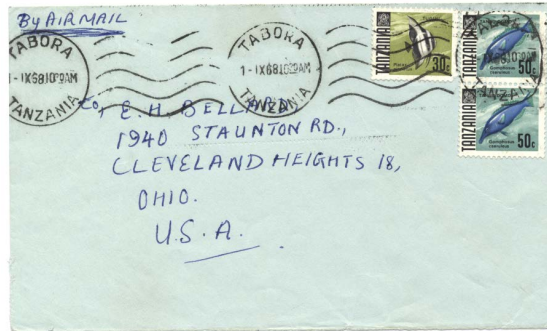 By AIR MAIL
TABORA
1-IX68 10 AM
TANZANIA
TABORA
1-IX68 10 AM
TANZANIA
TANZANIA
30c
TANZANIA
50c
TANZANIA
50c
To, E. H. BELLA
1940 STAUNTON RD.,
CLEVELAND HEIGHTS 18,
OHIO.
U.S.A.